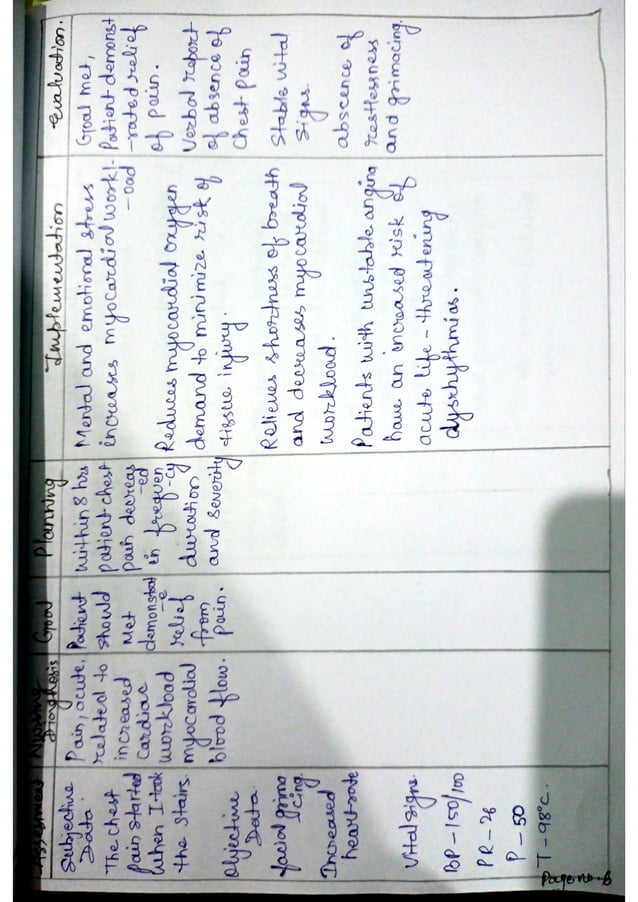 Assessment
Subjective
Data.
The chest
pain started
when I took
the stairs.
Objective
Data.
facial grima
cing.
Increased
heart rate
Vital signs.
BP - 150/100
PR - 26
P - 50
T - 98°C.
Nursing
Diagnosis
Pain, acute,
related to
increased
cardiac
workload
myocardial
blood flow.
Goal
Patient
should
met
demonstrat
-e
relief
from
pain.
Planning
within 8 hrs
patient chest
pain decreas
-ed
in frequen
-cy
duration
and severity
Implementation
Mental and emotional stress
increases myocardial workl-
-oad
Reduces myocardial oxygen
demand to minimize risk of
tissue injury.
Relieves shortness of breath
and decreases myocardial
workload.
Patients with unstable angina
have an increased risk of
acute life - threatening
dysrhythmias.
Evaluation.
Goal met,
Patient demonst
-rated relief
of pain.
Verbal report
of absence of
chest pain
Stable vital
signs.
abscence of
restlessness
and grimacing.
Page no. 6